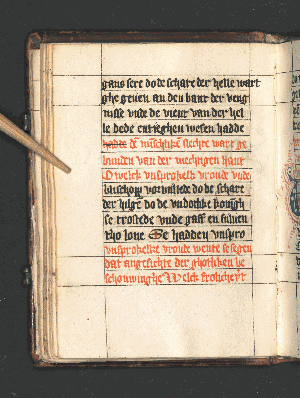 gans sere do de schare der helle wart
ghe geuen an den bant der veng
nisse vnde de vient van der hel
le dede entfeghen wesen hadde
hadde dē minschlikē slechte wart ge
bunden van der mechtigen hant
O welck vnsprokelk vroude vnde
vorvullede do de schare
der hilgē do de vndotlike konigh
se trostede vnde gaff en sulven
tho lone Se hadden vnspro
vnsprokelke vroude wente se segen
dat angesichte der ghotliken be
schouwinghe Welck frolicheyt